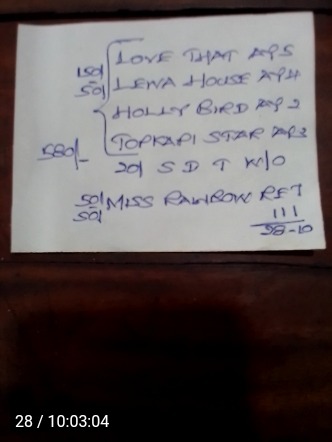 150/ LOVE THAT AP5
50/ LEWA HOUSE AP4
HOLLY BIRD AP2
580/- TOPKAPI STAR AP3
20/ S D T W/O
50/ MISS RAINBOW RF7
50/ 111
28-10
28 / 10:03:04